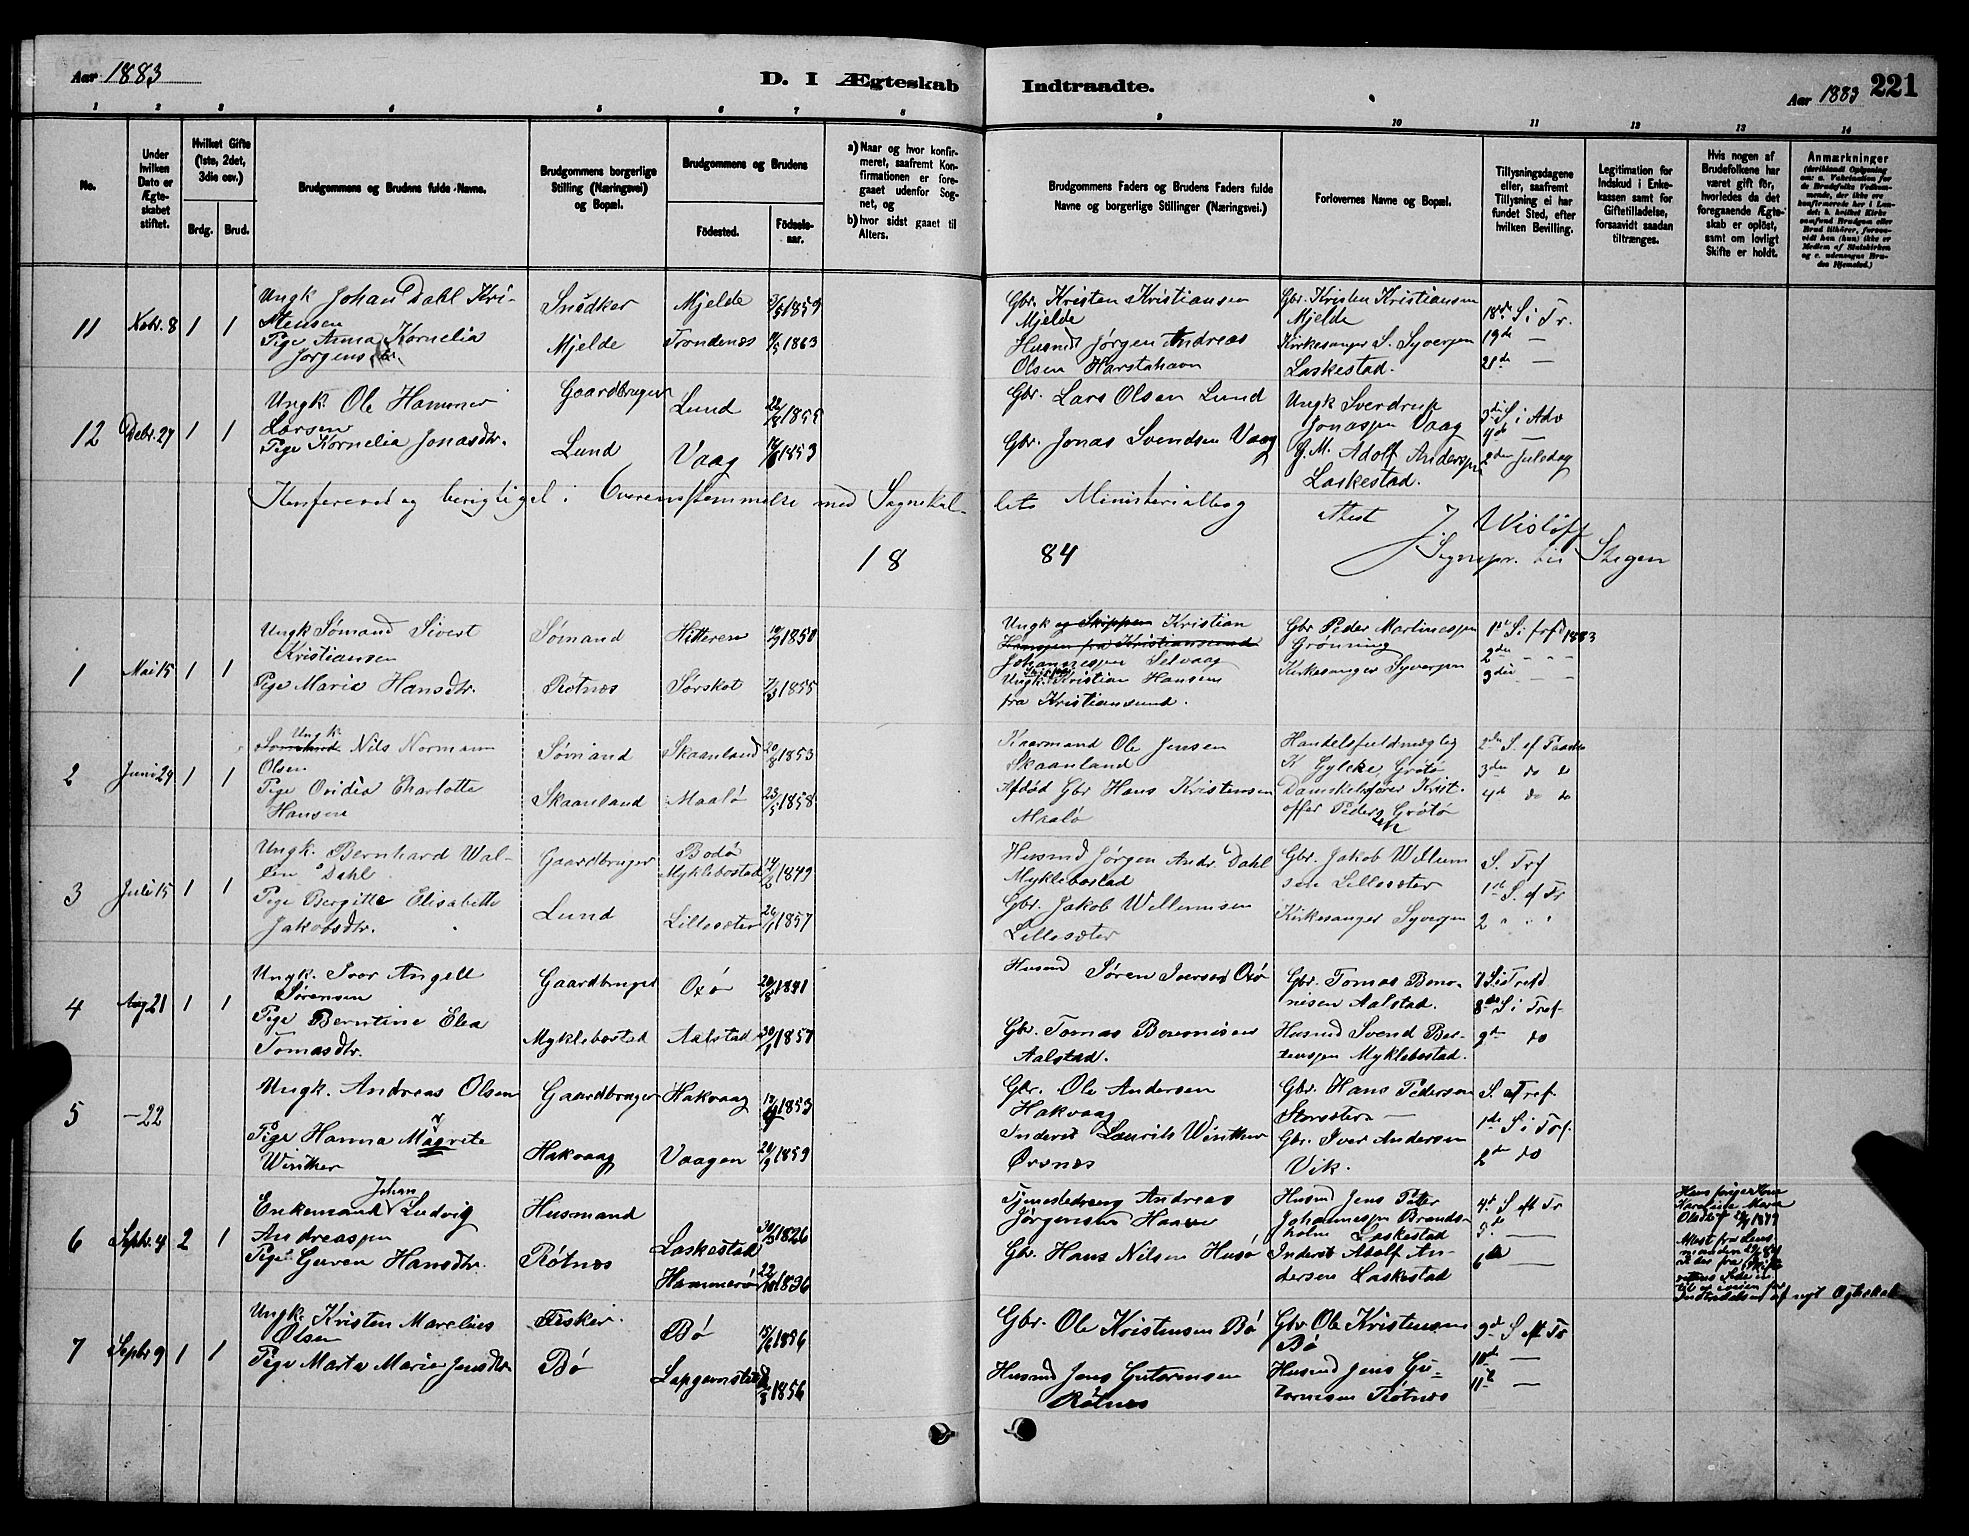 Aar 1883
D. I Ægteskab Indtraadte.
Aar 1883 221
1 2 3 4 5 6 7 8 9 10 11 12 13 14
No.
Under hvilken Dato er Ægteskabet stiftet.
Hvilket Gifte (1ste, 2det, 3die osv.)
Brdg. Brud.
Brudgommens og Brudens fulde Navne.
Brudgommens borgerlige Stilling (Næringsvei) og Bopæl.
Brudgommens og Brudens
Fødested. Fødselsaar.
a) Naar og hvor konfirmeret, saafremt Konfirmationen er foregaaet udenfor Sognet, og
b) hvor sidst gaaet til Alters.
Brudgommens Faders og Brudens Faders fulde Navne og borgerlige Stillinger (Næringsvei.)
Forlovernes Navne og Bopæl.
Tillysningsdagene eller, saafremt Tillysning ei har fundet Sted, efter hvilken Bevilling.
Legitimation for Indskud i Enkekassen samt for Giftetilladelse, forsaavidt saadan tiltrænges.
Hvis nogen af Brudefolkene har været gift før, hvorledes da det foregaaende Ægteskab er opløst, samt om lovligt Skifte er holdt.
Anmærkninger
11 8 1 1
Ungk Johan Dahl Kristensen
Pige Anna Kornelia Jørgensdtr.
Snedker Mjelde
Mjelde 1859
Trondenes 1863
Gbr. Kristen Kristiansen Mjelde
Husmd Jørgen Andreas Olsen Harstahavn
Gbr. Kristen Kristiansen Mjelde
Kirkesanger S. Syversen Laskestad.
18de S i Tr.
19de —
21de —
12 Debr. 27 1 1
Ungk. Ole Hammer Larsen
Pige Kornelia Jonasdtr.
Gaardbruger Lund
Lund 1855
Vaag 1853
Gbr. Lars Olsen Lund
Gbr. Jonas Svendsen Vaag
Ungk Sverdrup Jonassen Vaag
G.M. Adolf Anderssen Laskestad.
3di S i Adv
4de —
2den Juledag
Konfereret og berigtiget i Overensstemmelse med Sognekaldets Ministerialbog
Attest J Wisløff
Sognepr. til Stegen
1884
1 Mai 15 1 1
Ungk Sømand Sivert Kristiansen
Pige Maria Hansdtr.
Sømand Røtnes
Hitteren 1850
Sørskot 1855
Ungk og Skipper Kristian
Hanssen fra Kristiansund
Johannessen Selvaag
Ungk. Skipper Kristian Hansen
fra Kristiansund.
Gbr Peder Martinessen Grønning
Kirkesanger Syversen
1st S i frf 1883
2den " "
3die " "
2 Juni 29 1 1
Ungk.
Sømand Nils Normann Olsen
Pige Ovidia Charlotte Hansen
Sømand Skaanland
Skaanland 20/8 1853
Maalø 23/5 1858
Kaarmand Ole Jensen Skaanland
Afdød Gbr Hans Kristensen Maalø
K Gylche, Grøtø
Kristoffer Grøtø
2den S. ef Paaske
3die do do
4de do do
3 Juli 15 1 1
Ungk. Bernhard Dahl
Pige Bergitte Elisabeth Jakobsdtr.
Gaardbruger Lund
Bodø Myklebostad 1849
Lillesæter 1857
Husmd Jørgen Andr. Dahl Myklebostad
Gbr. Jakob Willumsen Lillesæter
Gbr. Jakob Willumsen Lillesæter
Kirkesanger Syversen
S. Trf
1ste S. ef Tr
2 " "
4 Aug 21 1 1
Ungk. Ivor Angell Sørensen
Pige Berntine Elea Tomasdtr.
Gaardbruger Myklebostad
Oxø 1841
Aalstad 1857
Husmd Søren Iversen Oxø
Gbr. Tomas Benonisen Aalstad.
Gbr. Tomas Benonisen Aalstad.
Husmd Svend Myklebostad.
7 S i Tref
8de S i Tref
9de do
5 —22
Ungk. Andreas Olsen
Pige Hanna Magrete Winther
Gaardbruger Hakvaag
Hakvaag 1853
Vaagen 1859
Gbr. Ole Andersen Hakvaag
Inderst Laurits Winther Ørsnes
Gbr. Hans Pedersen Storsæter —
Gbr. Iver Andersen Vik.
S. af Tref
1ste S i Trf.
2de do
6 Septbr. 4 2 1
Enkemand Johan Ludvig Andreassen
Pige Guren Hansdtr.
Husmand Røtnes
Laskestad 1826
Hammerø 1836
Tjenestedreng Andreas Jørgensen
Gbr. Hans Nilsen Husø
Husmd Jens Peter Johannessen Laskestad
Inderst Adolf Andersen Laskestad
4de S eft Tr
5te —
6te —
Indtrædelse af nyt Ægteskab
7 Septbr 9 1 1
Ungk. Kristen Marelius Olsen
Pige Marta Marie Jensdtr.
Fisker Bø
Bø 1856
1856
Gbr. Ole Kristensen Bø
Husmd Jens Gutormsen Røtnes
Gbr Ole Kristensen Bø
Husmd Jens Gutormsen Røtnes
9de S eft Tr
10de —
11te —